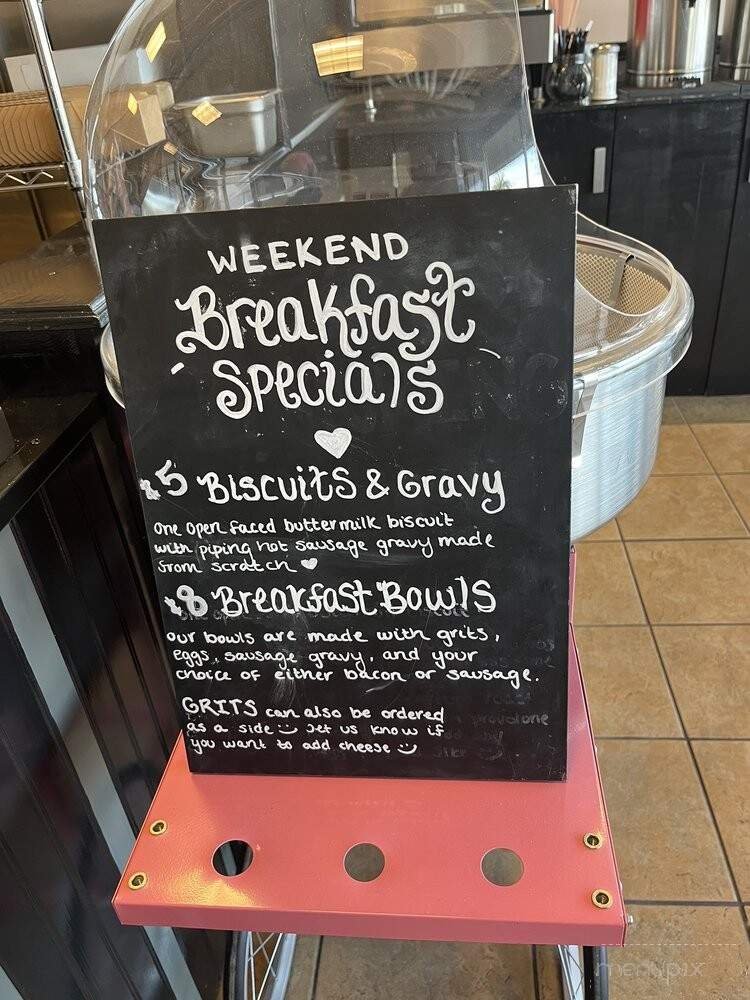 WEEKEND
Breakfast
Specials
$5 Biscuits & Gravy
one open faced buttermilk biscuit
with piping hot sausage gravy made
from scratch ♥
$8 Breakfast Bowls
our bowls are made with grits,
eggs, sausage gravy, and your
choice of either bacon or sausage.
GRITS can also be ordered
as a side :) Let us know if
you want to add cheese :)
menupix